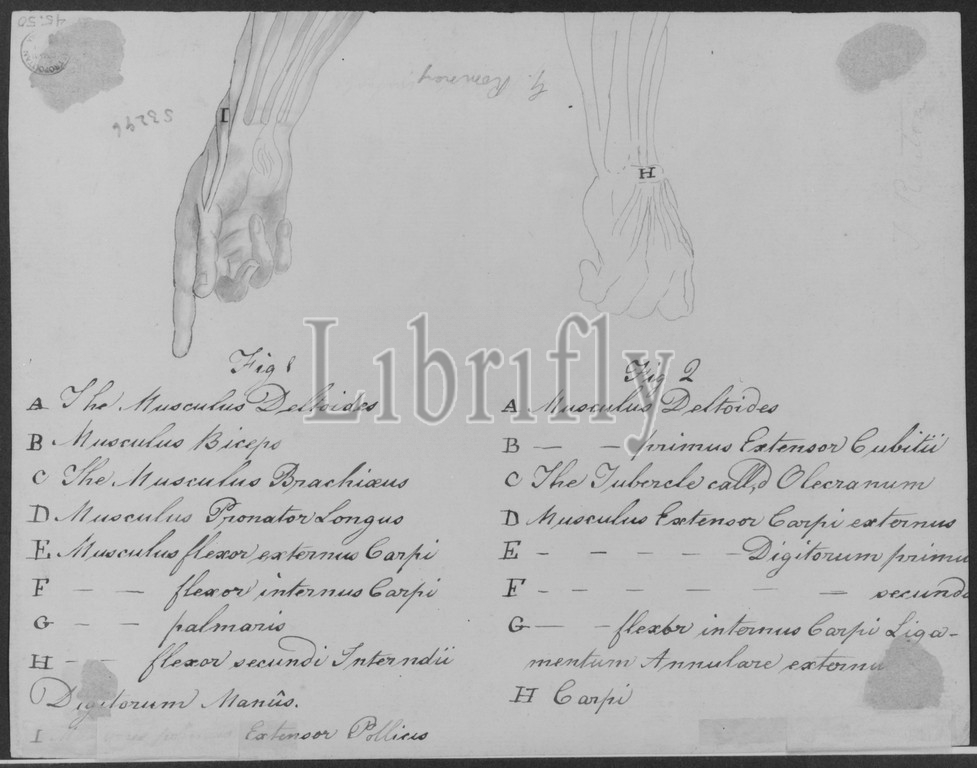 45.50
53296
G. Romney
I
H
Librifly
Fig 1
A The Musculus Deltoides
B Musculus Biceps
C The Musculus Brachiæus
D Musculus Pronator Longus
E Musculus flexor externus Carpi
F — — flexor internus Carpi
G — — palmaris
H — — flexor secundi Interndii
Digitorum Manûs.
I Extensor Pollicis
Fig 2
A Musculus Deltoides
B — — primus Extensor Cubitii
C The Tubercle call,d Olecranum
D Musculus Extensor Carpi externus
E - - - - - Digitorum primu
F - - - - - - secund
G — — flexor internus Carpi Liga-
mentum Annulare externu
H Carpi